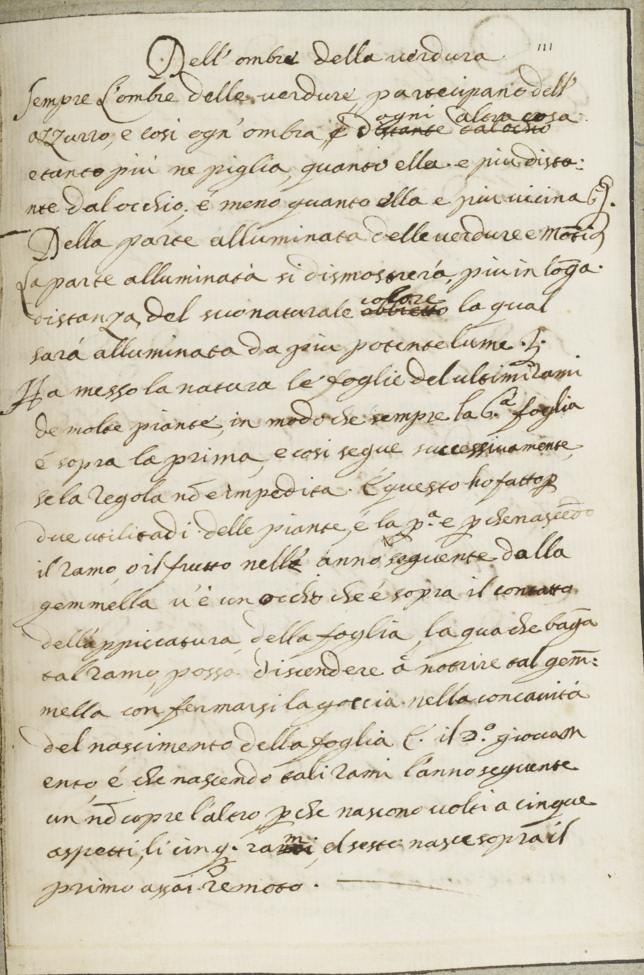 111
Dell' ombre della verdura
Sempre L'ombre delle verdure, partecipano dell'
azzurro, e cosi ogn' ombra, ogni altra cosa
e tanto piú ne piglia, quanto ella e piu dista:
nte dal occhio. é meno quanto ella e piu vicina
Della parte alluminata delle verdure e
La parte alluminatá si dismostrerá, piu in
distanza, del suo naturale colore la qual
sará alluminata da piu potente lume.
Ha messo la natura le foglie del ultimi rami
de molte piante, in modo che sempre la 6.a foglia
é sopra la prima, e cosi segue successivamente,
se la regola nō e impedita. É questo ho fatto ꝑ
due utilitadi delle piante, é la p.a e ꝑche nascēdo
il ramo, o il frutto nell' anno seguente dalla
gemmella v'é un occhio che é sopra il contatto
dell'appiccatura della foglia, la qua che bagna
tal ramo, possa discendere á notrire tal gem:
mella con fermarsi la goccia nella concavitá
del nascimento della foglia. il 2.o giovam
ento é che nascendo tali rami l'anno seguente
un' nō copre l'altro ꝑche nascono volti a cinque
aspetti, li cinq. rami, el sesto nasce sopra il
primo assai remoto.